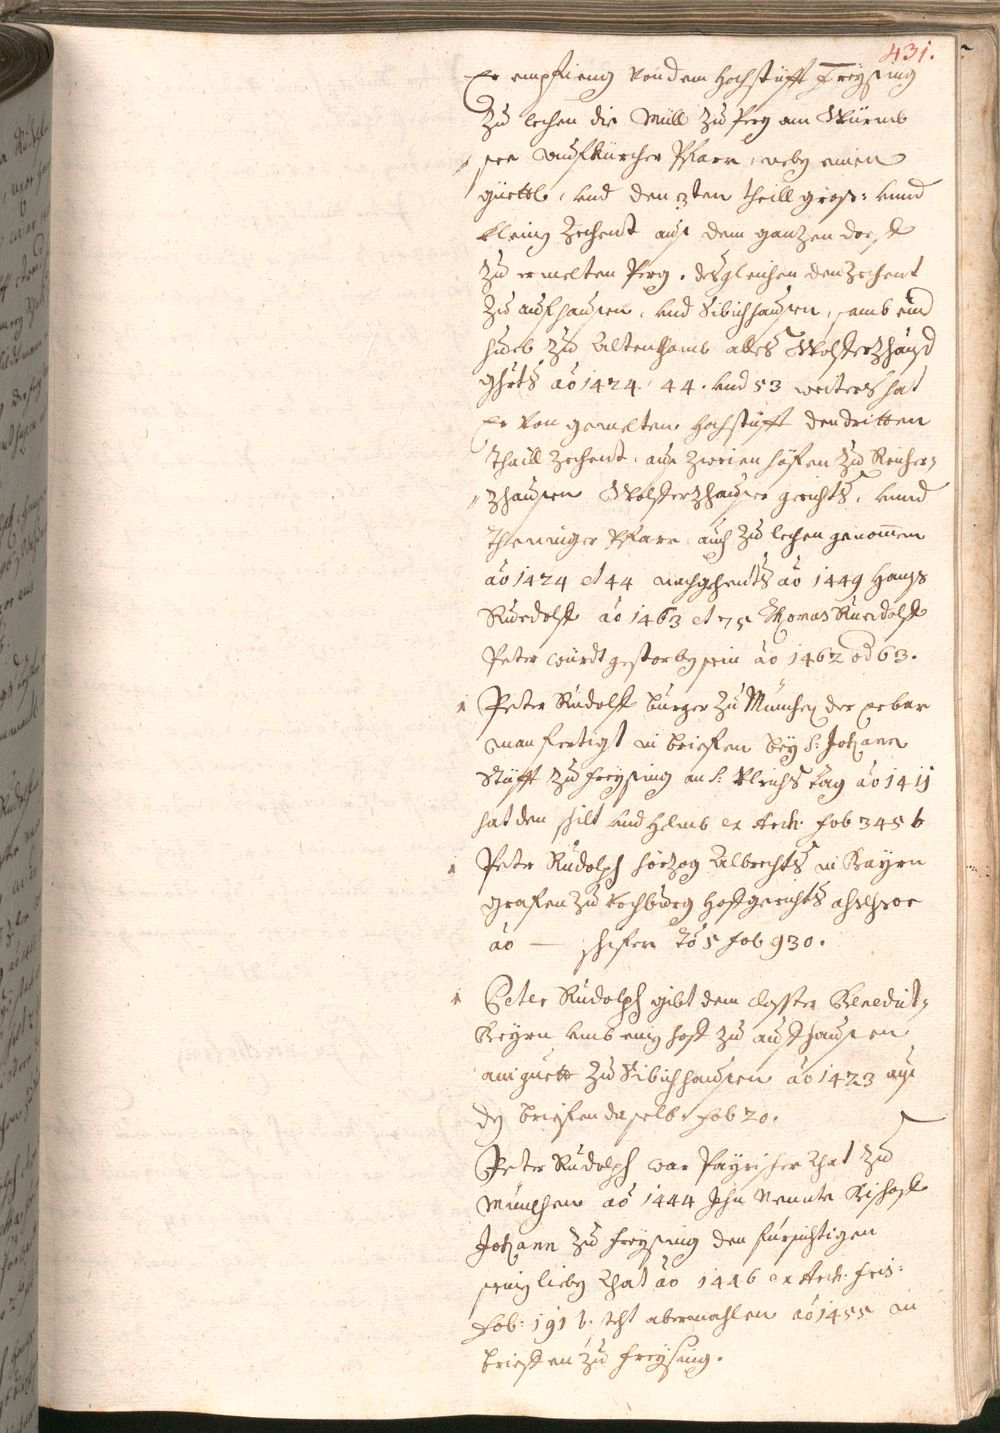 431.
Er empfieng von dem Hochstüfft Freysing
zu lechen die Müll zu Perg am Würmb
see Aufkürcher Pfarr, neben einen
güettl, und den 3ten theill gross: unnd
kleinen Zechent auß dem ganzen dorff
zu ermelten Perg. desgleichen den Zechent
zu aufhausen, und Sibichhausen, samb ein
hueb zu Altenhamb alles Wolfertzhausen
ghrts aō 1424. 44. und 53 weiters hat
Er von gemelten Hochstüfft den dritten
thaill Zechent, auß zweien höfen zu
zhausen Wolfertzhauser gerichts, unnd
Pfarr auch zu lechen genommen
aō 1424 et 44 nachgehents aō 1449 Hanß
Ruedolff aō 1463 et 75 Thomas Ruedolff
Peter würdt gestorben sein aō 1462 od 63.
Peter Rudolff burger zu München der erbar
man fertigt in briefen bey S: Johann
Stüfft zu Freysing an S: Ulrichs tag aō 1411
hat den schilt und Helmb ex Arch. fol 345 b
Peter Rudolph Hörzog Albrechts in Bayrn
grafen zu Vochburg Hoffgerichts
aō — schifer To 5 fol 930.
Peter Rudolph gibt dem closter Benedict-
Beyrn umb ein hoff zu aufhausen
ain guett zu Sibichhausen aō 1423 auß
den briefen daselb. fol 20.
Peter Rudolph war Payrischer Rhat zu
München aō 1444 Ihn Nennte Bischoff
Johann zu Freysing den fürsichtigen
sein lieben Rhat aō 1446 ex Arch. fris:
fol: 191 b. abermahlen aō 1455 in
brieffen zu Freysing.